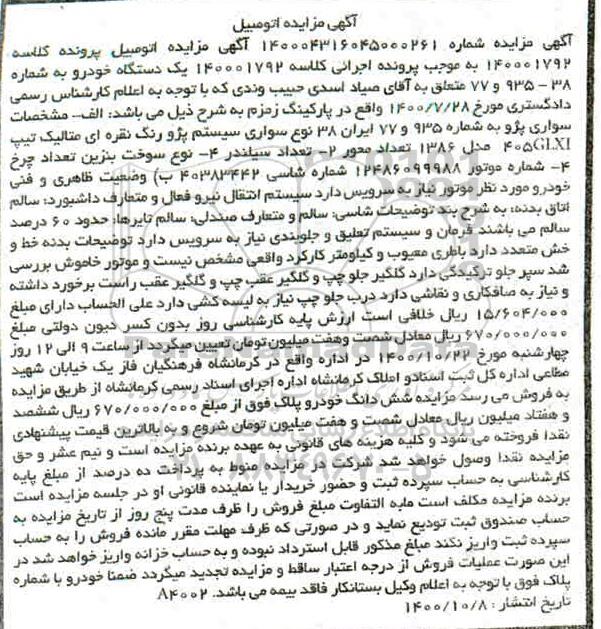 آگهی مزایده اتومبیل
آگهی مزایده شماره ۱۴۰۰۰۴۳۱۶۰۴۵۰۰۰۲۶۱ آگهی مزایده اتومبیل پرونده کلاسه
۱۴۰۰۰۱۷۹۲ به موجب پرونده اجرائی کلاسه ۱۴۰۰۰۱۷۹۲ یک دستگاه خودرو به شماره
۳۸ - ۹۳۵ و ۷۷ متعلق به آقای صیاد اسدی حبیب وندی که با توجه به اعلام کارشناس رسمی
دادگستری مورخ ۱۴۰۰/۷/۲۸ واقع در پارکینگ زمزم به شرح ذیل می باشد: الف- مشخصات
سواری پژو به شماره ۹۳۵ و ۷۷ ایران ۳۸ نوع سواری سیستم پژو رنگ نقره ای متالیک تیپ
۴۰۵GLXI مدل ۱۳۸۶ تعداد محور ۲- تعداد سیلندر ۴- نوع سوخت بنزین تعداد چرخ
۴- شماره موتور ۱۲۴۸۶۰۹۹۹۸۸ شماره شاسی ۴۰۳۸۳۴۴۲ ب) وضعیت ظاهری و فنی
خودرو مورد نظر موتور نیاز به سرویس دارد سیستم انتقال نیرو فعال و متعارف داشبورد: سالم
اتاق بدنه: به شرح بند توضیحات شاسی: سالم و متعارف صندلی: سالم تایرها: حدود ۶۰ درصد
سالم می باشند فرمان و سیستم تعلیق و جلوبندی نیاز به سرویس دارد توضیحات بدنه خط و
خش متعدد دارد باطری معیوب و کیلومتر کارکرد واقعی مشخص نیست و موتور خاموش بررسی
شد سپر جلو ترکیدگی دارد گلگیر جلو چپ و گلگیر عقب چپ و گلگیر عقب راست برخورد داشته
و نیاز به صافکاری و نقاشی دارد درب جلو چپ نیاز به لیسه کشی دارد علی الحساب دارای مبلغ
۱۵/۶۰۴/۰۰۰ ریال خلافی است ارزش پایه کارشناسی روز بدون کسر دیون دولتی مبلغ
۶۷۰/۰۰۰/۰۰۰ ریال معادل شصت وهفت میلیون تومان تعیین میگردد از ساعت ۹ الی ۱۲ روز
چهارشنبه مورخ ۱۴۰۰/۱۰/۲۲ در اداره واقع در کرمانشاه فرهنگیان فاز یک خیابان شهید
مظامی اداره کل ثبت اسنادو املاک کرمانشاه اداره اجرای اسناد رسمی کرمانشاه از طریق مزایده
به فروش می رسد مزایده شش دانگ خودرو پلاک فوق از مبلغ ۶۷۰/۰۰۰/۰۰۰ ریال ششصد
و هفتاد میلیون ریال معادل شصت و هفت میلیون تومان شروع و به بالاترین قیمت پیشنهادی
نقدا فروخته می شود و کلیه هزینه های قانونی به عهده برنده مزایده است و نیم عشر و حق
مزایده نقدا وصول خواهد شد شرکت در مزایده منوط به پرداخت ده درصد از مبلغ پایه
کارشناسی به حساب سپرده ثبت و حضور خریدار یا نماینده قانونی او در جلسه مزایده است
برنده مزایده مکلف است مابه التفاوت مبلغ فروش را ظرف مدت پنج روز از تاریخ مزایده به
حساب صندوق ثبت تودیع نماید و در صورتی که ظرف مهلت مقرر مانده فروش را به حساب
سپرده ثبت واریز نکند مبلغ مذکور قابل استرداد نبوده و به حساب خزانه واریز خواهد شد در
این صورت عملیات فروش از درجه اعتبار ساقط و مزایده تجدید میگردد ضمنا خودرو با شماره
پلاک فوق با توجه به اعلام وکیل بستانکار فاقد بیمه می باشد. ۸۴۰۰۲
تاریخ انتشار : ۱۴۰۰/۱۰/۸